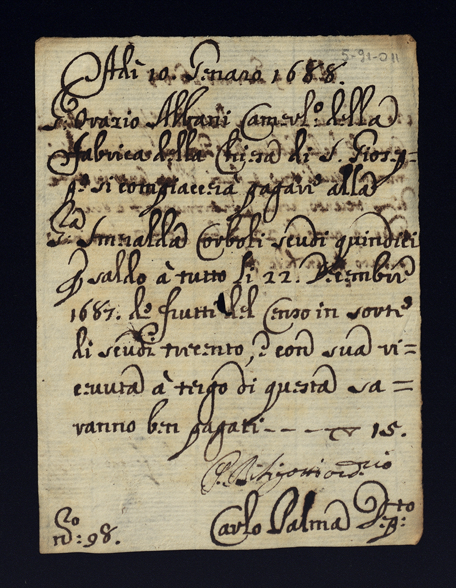 5-91-011
Adi 10. Genaro 1688.
Sr Orazio Albani Camerl.o della
Fabrica della Chiesa di S. Giorg-
g.o si compiacerà pagare alla
Sra Smiralda Corboli scudi quindici
saldo à tutto li 22. Decembre
1687. de frutti del Censo in sorte
di scudi trecento, e con sua ri=
ceuuta à tergo di questa sa=
ranno ben pagati - - - 15.
Carlo Palma
no: 98.